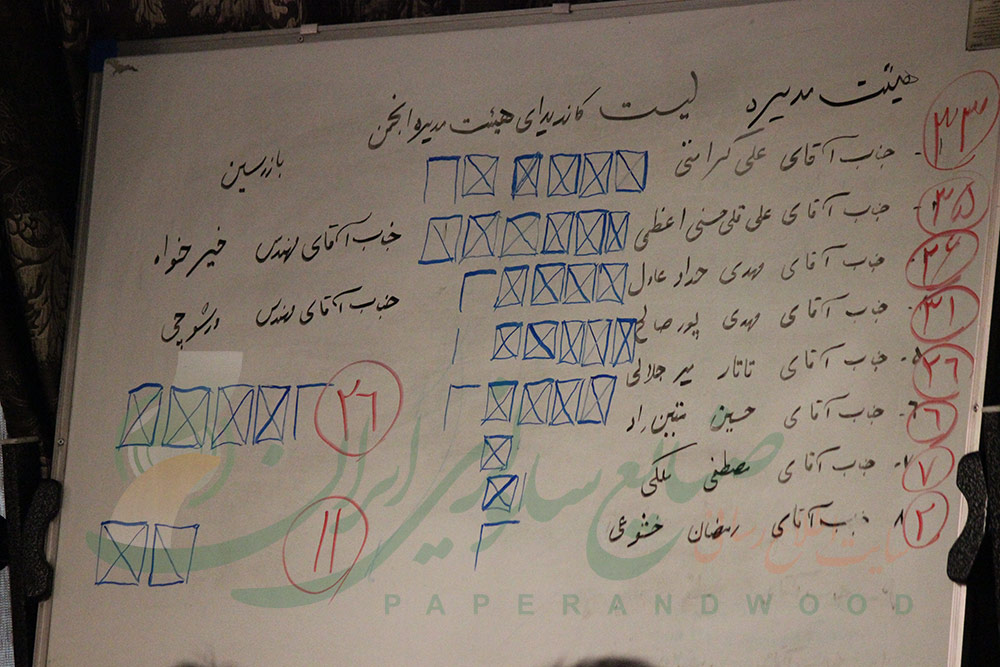 هیئت مدیره لیست کاندیدای هیئت مدیره انجمن
۱- جناب آقای علی کرامتی ۳۳
۲- جناب آقای علی قلی حسنی اعظمی ۳۵
جناب آقای مهدی حداد عادل ۲۶
جناب آقای مهدی پورصالح ۳۱
۵- جناب آقای تاتار میر جلالی ۲۶
۶- جناب آقای حسین متین راد ۶
۷- جناب آقای مصطفی ملکی ۷
۸ جناب آقای رمضان خشوعی ۲
بازرسین
جناب آقای مهندس خیرخواه
جناب آقای مهندس ورشوچی
۲۶
۱۱
صنایع سلولزی ایران
PAPERANDWOOD